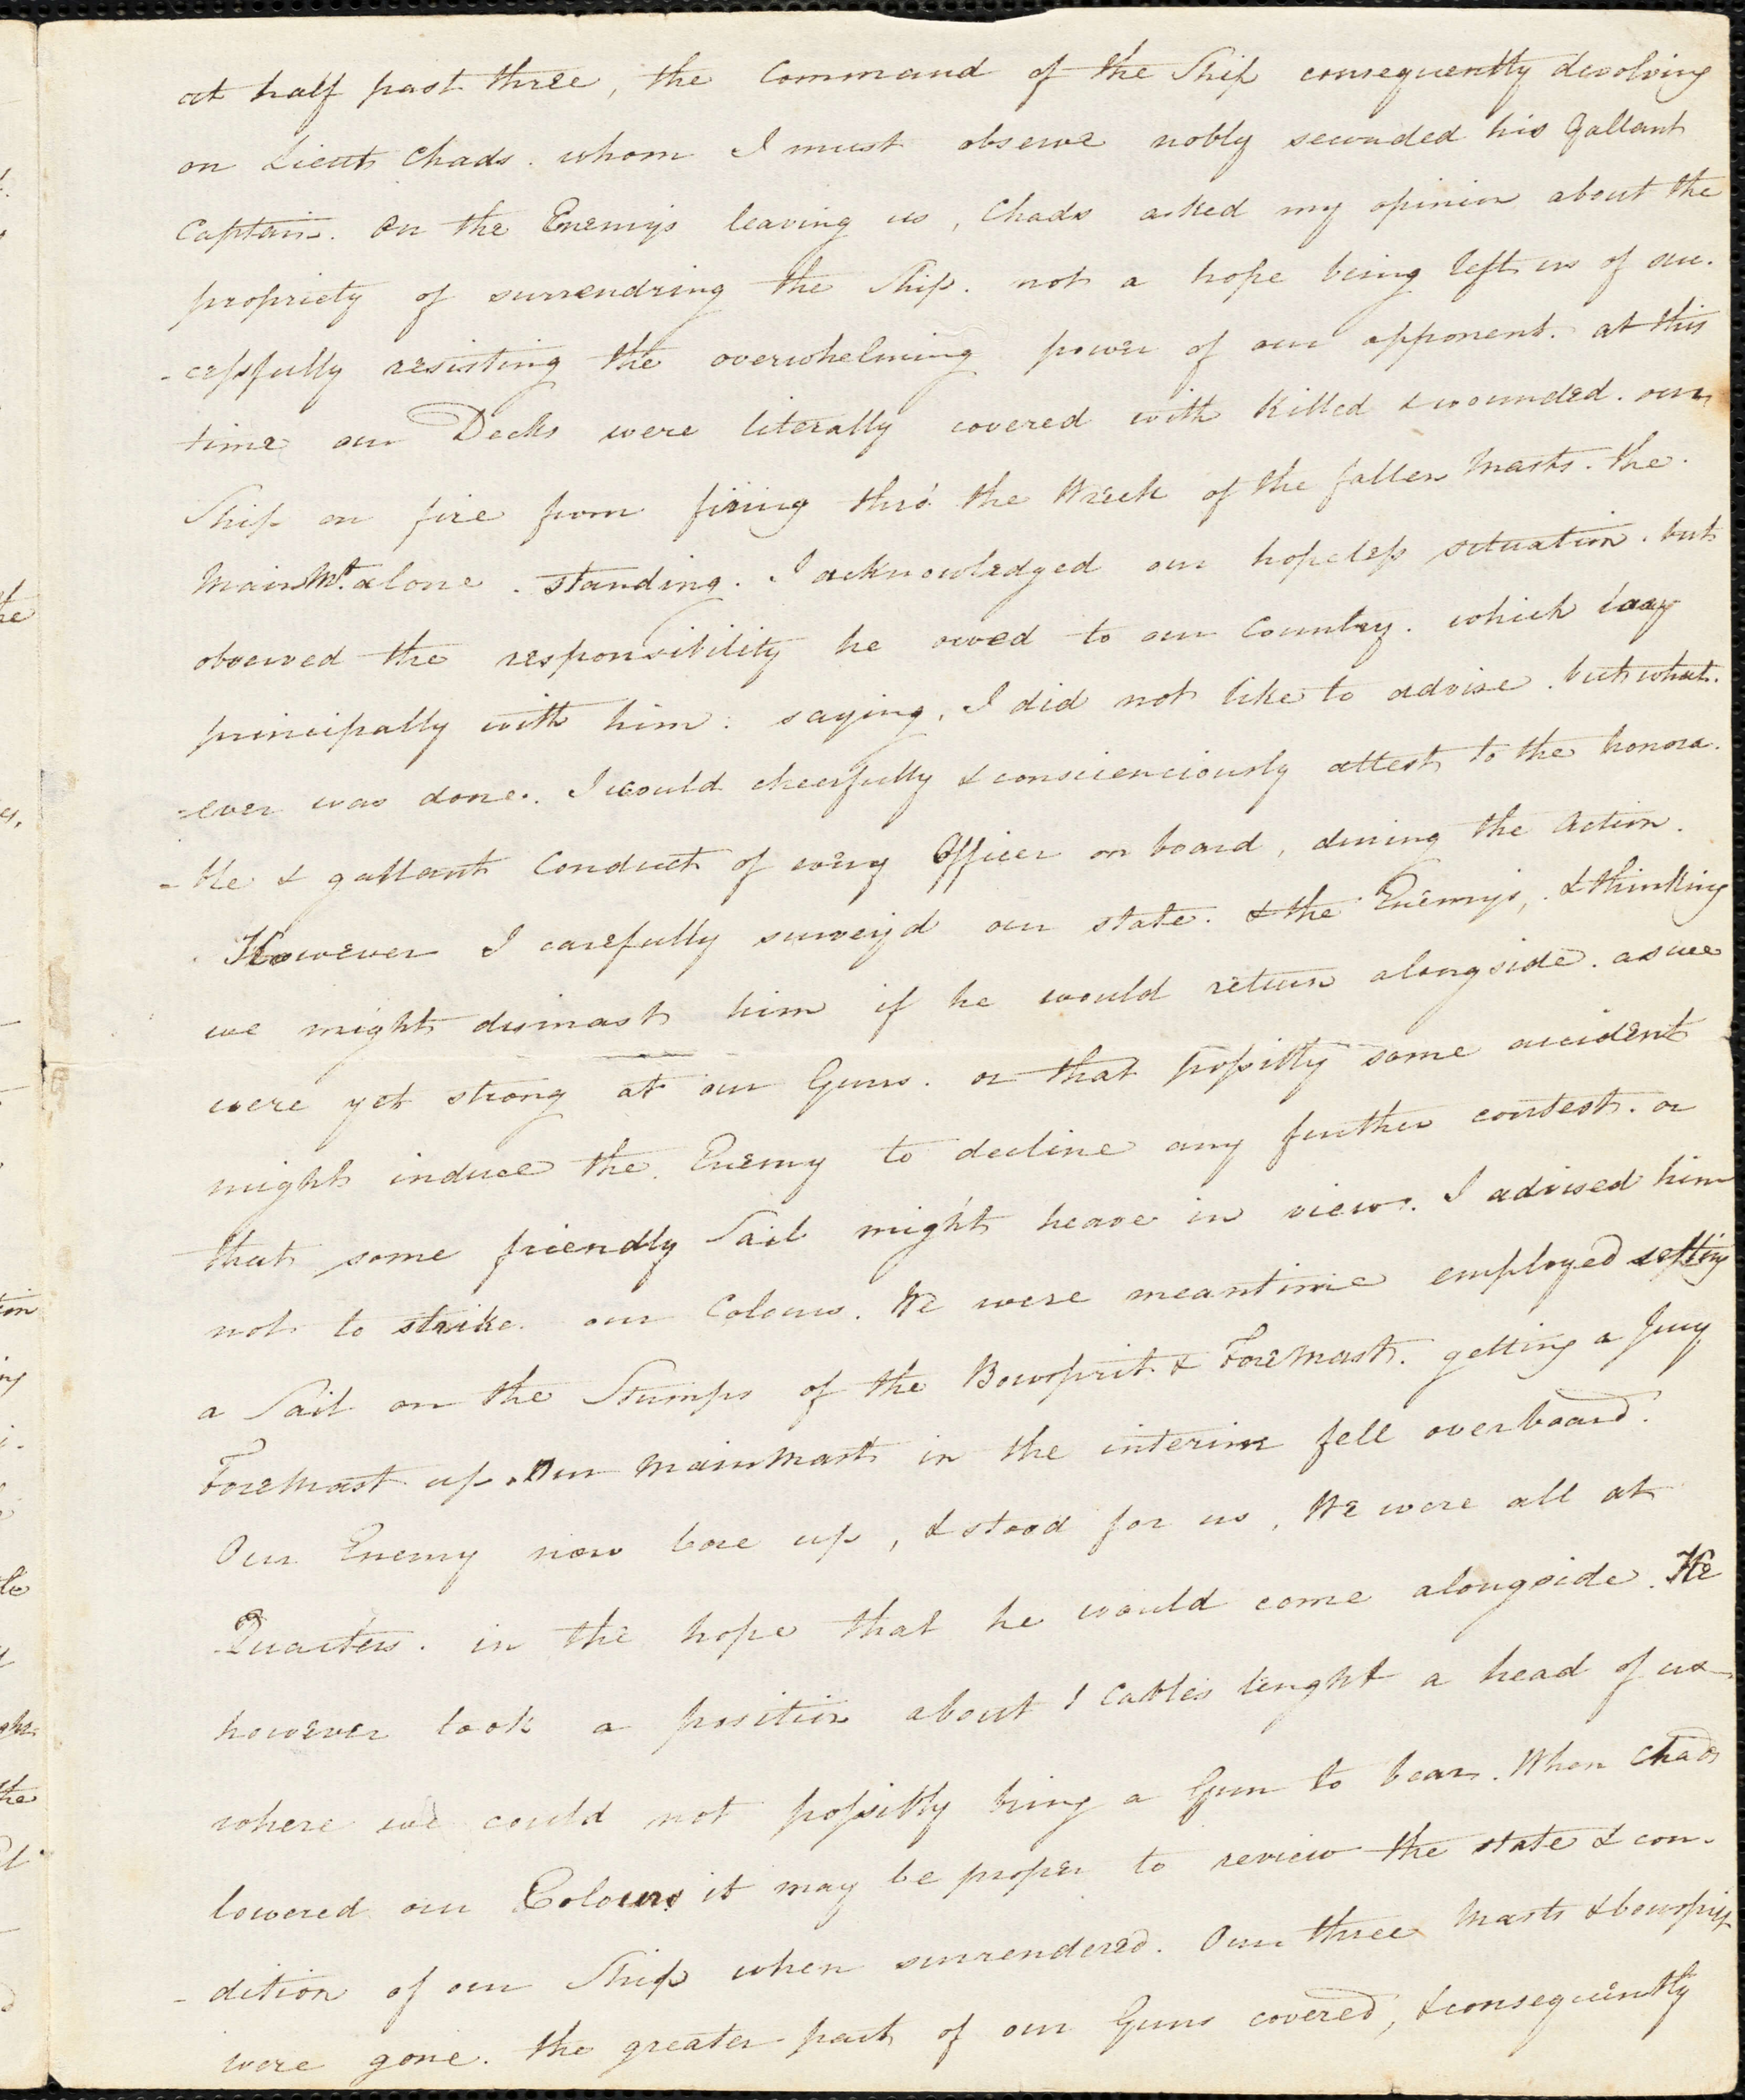 at half past three, the Command of the Ship consequently devolving
on Lieut Chads. whom I must observe nobly seconded his gallant
Captain. On the Enemys leaving us, Chads asked my opinion about the
propriety of surrendring the Ship. not a hope being left us of suc-
-cessfully resisting the overwhelming power of our opponent. at this
time our Decks were literally covered with killed & wounded. our
Ship on fire from firing thro' the Wreck of the fallen Masts. the
Main Mt. alone standing. I acknowledged our hopeless situation. but
observed the responsibility he owed to our Country. which lay
principally with him: saying, I did not like to advise. but what-
-ever was done. I would cheerfully & conscienciously attest to the honora-
-ble & gallant Conduct of every Officer on board, during the Action.
However I carefully survey'd our state. & the Enemys, & thinking
we might dismast him if he would return alongside. as we
were yet strong at our Guns. or that possibly some accident
might induce the Enemy to decline any further contest. or
that some friendly Sail might heave in view. I advised him
not to strike our Colours. We were meantime employed setting
a Sail on the Stumps of the Bowsprit & Foremast. getting a Jury
Foremast up. Our Mainmast in the interim fell overboard.
Our Enemy now bore up, & stood for us, We were all at
Quarters. in the hope that he would come alongside. He
however took a position about 1 Cables lenght a head of us
where we could not possibly bring a Gun to bear. When Chads
lowered our Colours it may be proper to review the state & con-
-dition of our Ship when surrendered. Our three Masts & bowsprit
were gone. the greater part of our Guns covered, & consequently